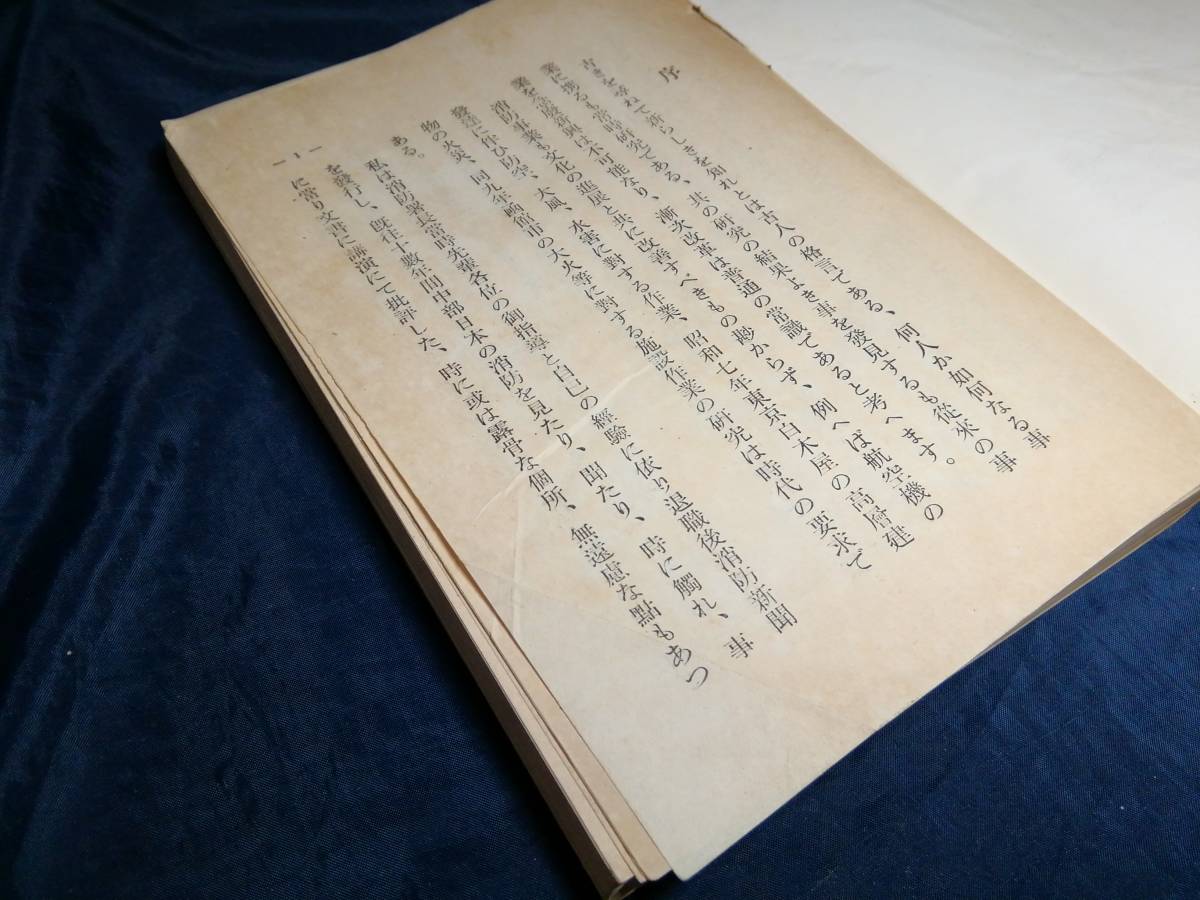 序
古きを尋ねて新らしきを知れとは古人の格言である、何人か如何なる事
業に携るも常時研究である、其の研究の結果よき事を發見するも從來の事
業を全廢新興は不可能なり、漸次改革は普通の常識であると考へます。
消防事業も文化の進展と共に改善すべきもの尠からず、例へば航空機の
發達に伴ひ防空、大風、水害に對する作業、昭和七年東京白木屋の高層建
物の火災、同九年函館市の大火等に對する施設作業の研究は時代の要求で
ある。
私は消防署長當時先輩各位の御指導と自己の經驗に依り退職後消防新聞
を發行し、既往十數年間中部日本の消防を見たり、聞たり、時に觸れ、事
に當り文書に講演にて批評した、時に或は露骨な個所、無遠慮な點もあつ
— 1 —